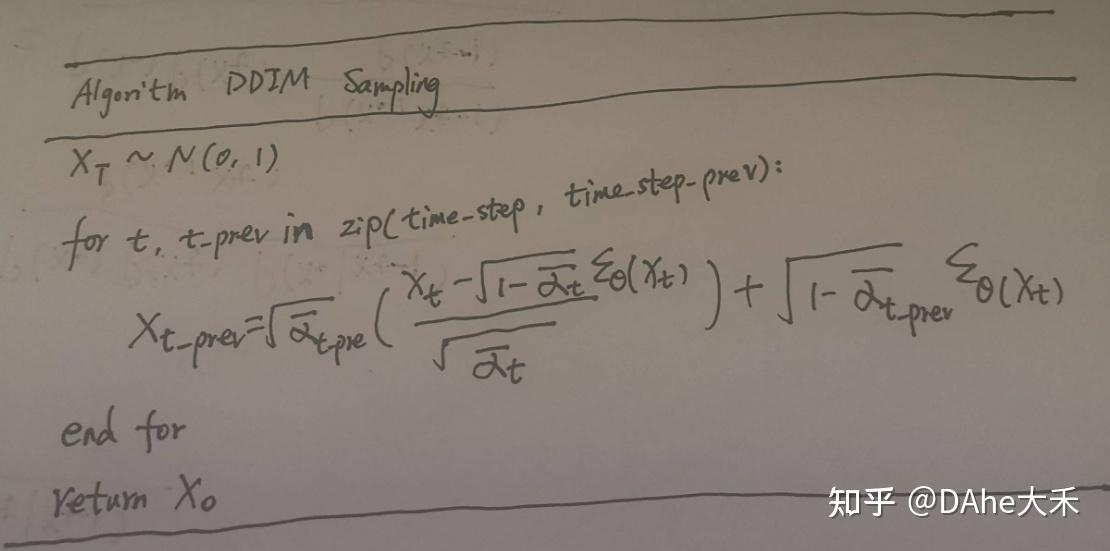 Algorithm DDIM Sampling
X_T ~ N(0, 1)
for t, t-prev in zip(time-step, time-step-prev):
X_{t-prev} = √ᾱ_{t-pre} ( (X_t - √(1-ᾱ_t) ε_θ(X_t)) / √ᾱ_t ) + √(1-ᾱ_{t-prev}) ε_θ(X_t)
end for
return X_0
知乎 @DAhe大禾